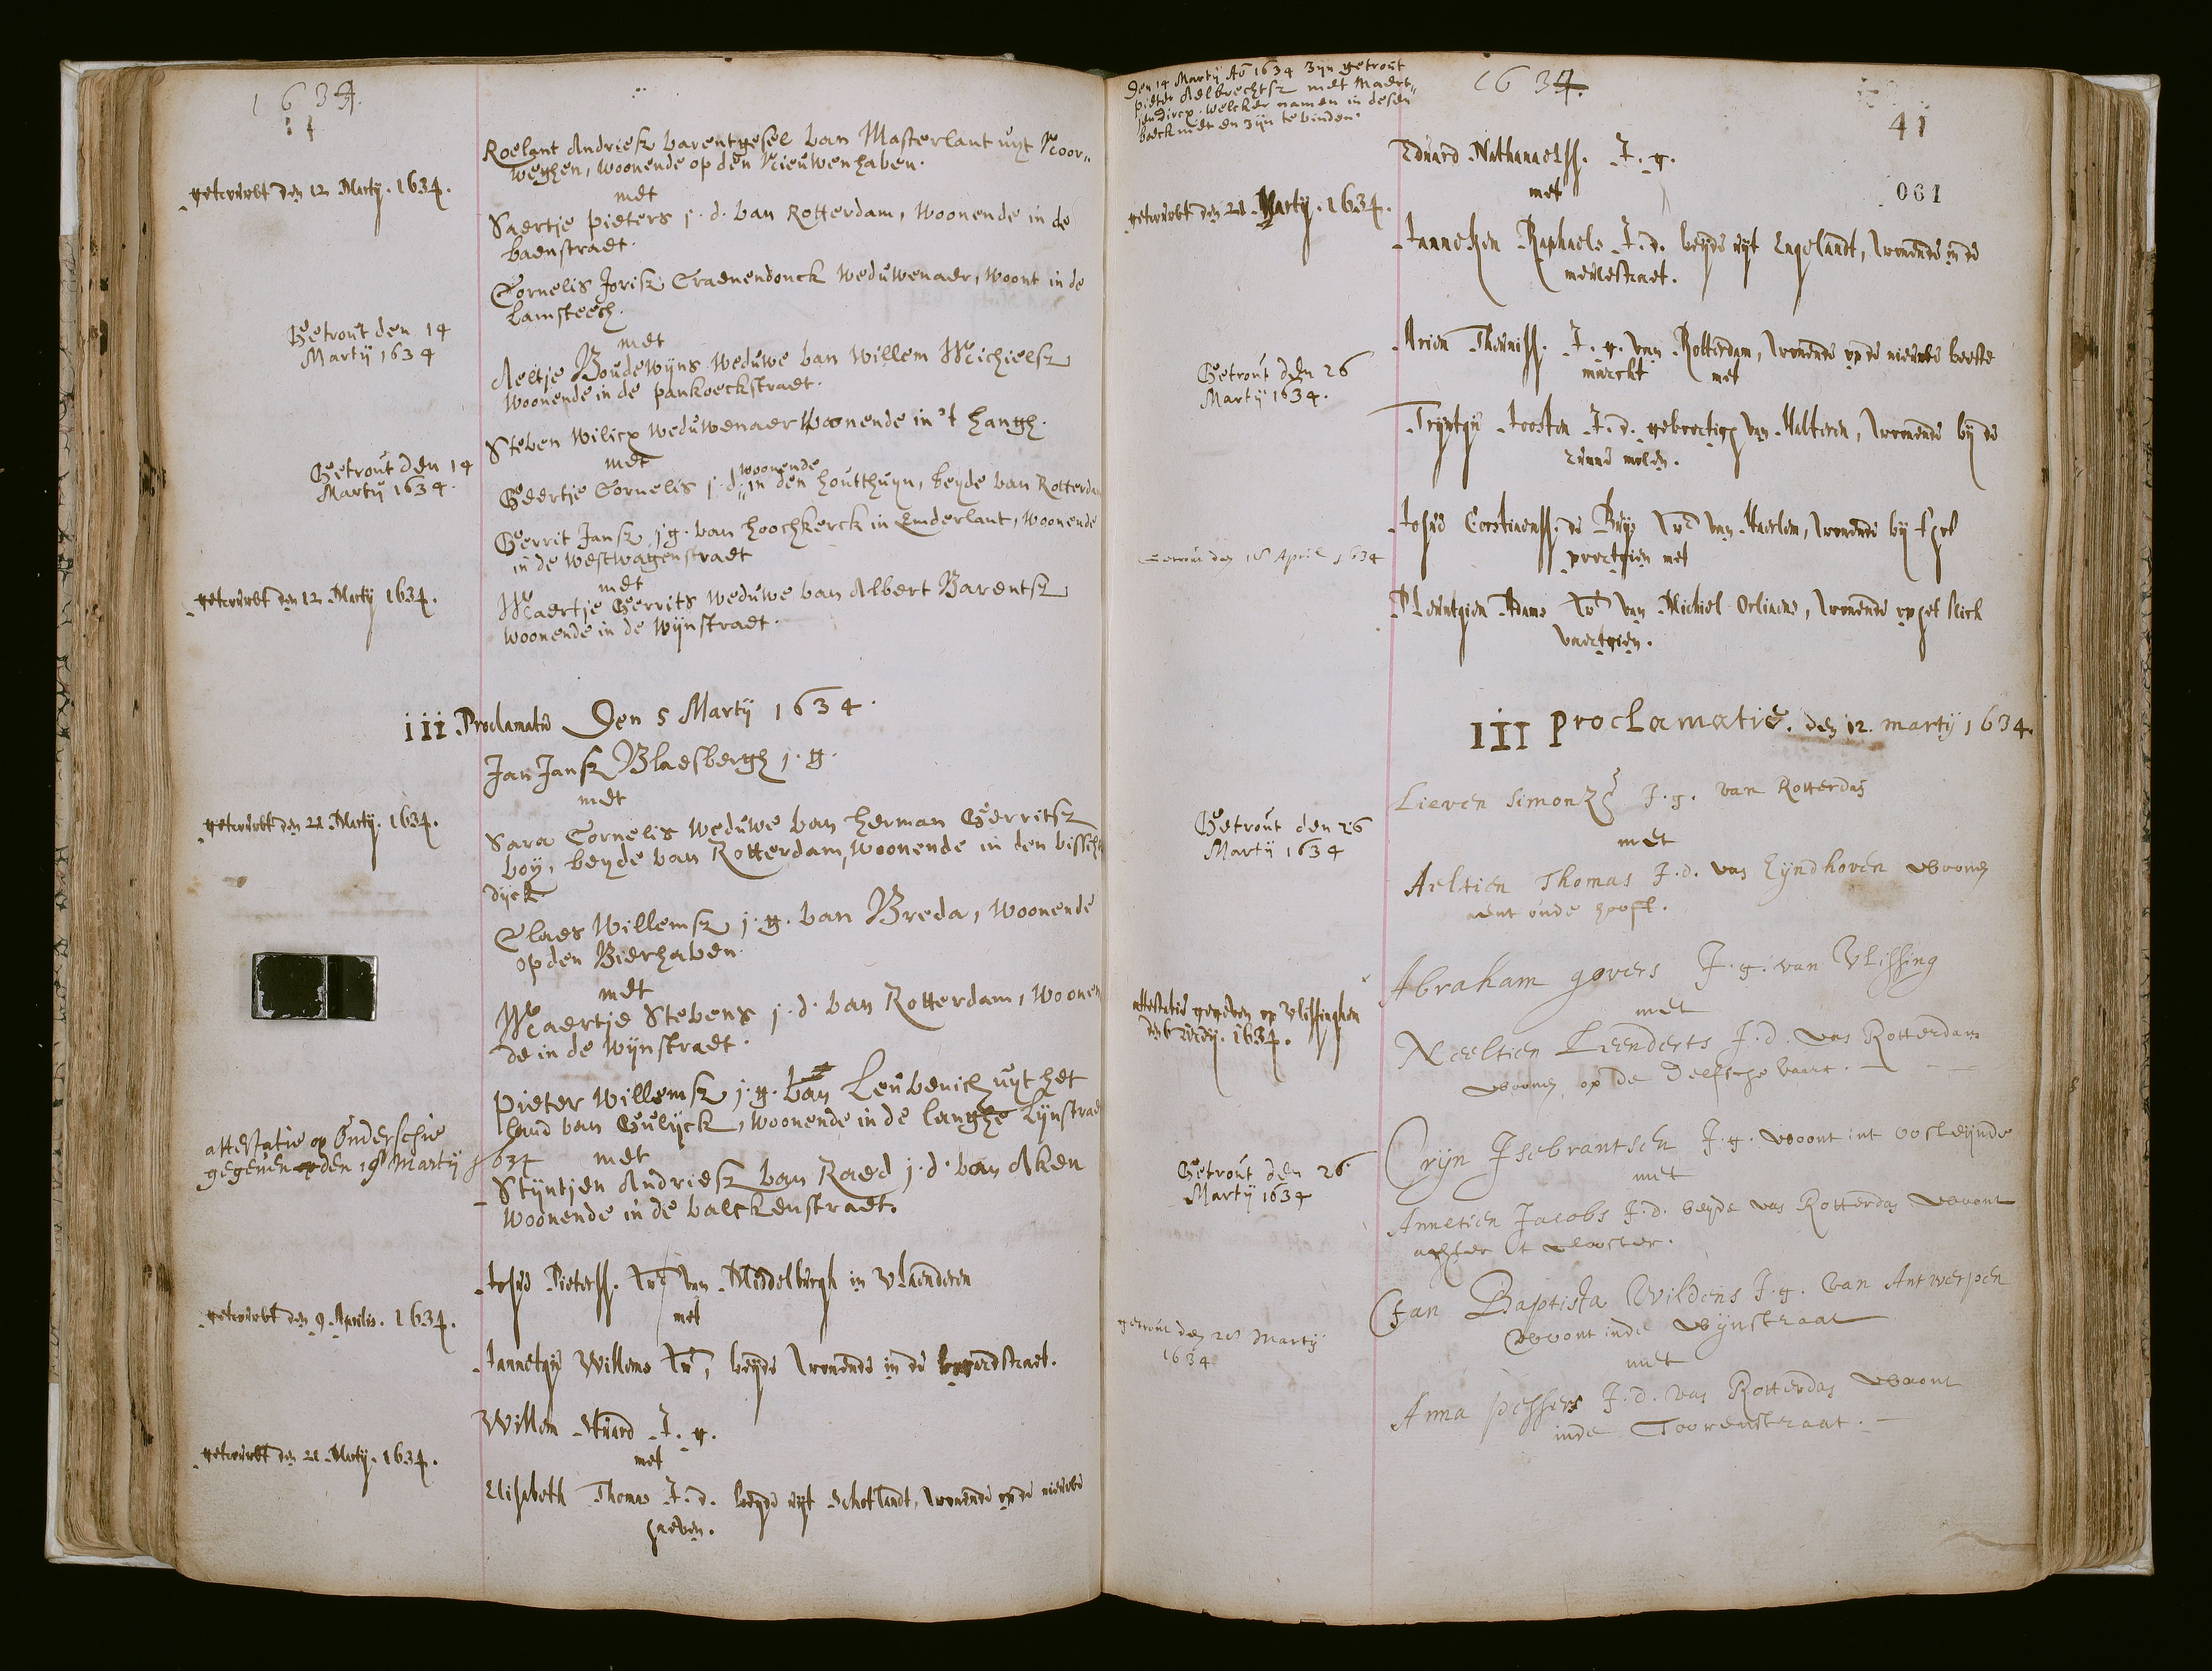 1634.
Roelant Andriesz barentgesel van Masterlant uyt Noor„
weghen, woonende op den Nieuwenhaven.
getrouwt den 12 Martij. 1634.
met
Saertje pieters j.d. van Rotterdam, woonende in de
baenstraet.
Cornelis Jorisz Craenendonck weduwenaer, woont in de
Lamsteech.
Getrout den 14
Martij 1634
met
Aeltje Boudewijns weduwe van Willem Michielsz
woonende in de pankoeckstraet.
Steven Wilicx weduwenaer woonende in 't hangh.
Getrout den 14
Martij 1634.
met
woonende
Geertje Cornelis j.d. in den houtthuyn, beyde van Rotterdam
Gerrit Jansz j.g. van hoochkerck in Emderlant, woonende
in de westwagenstraet
getrouwt den 12 Martij 1634.
met
Maertje Gerrits weduwe van Albert Barentsz
woonende in de wijnstraet.
iii Proclamatie Den 5 Martij 1634.
Jan Jansz Blaesbergh j.g.
met
getrouwt den 21 Martij. 1634.
Sara Cornelis weduwe van herman Gerritsz
boy, beyde van Rotterdam, woonende in den vissche
dijck
Claes Willemsz j.g. van Breda, woonende
op den Bierhaven.
met
Maertje Stevens j.d. van Rotterdam, woonen
de in de wijnstraet.
Pieter Willemsz j.g. van Leuvenich uyt het
land van Gulijck, woonende in de langhe Lijnstraet
attestatie op Ouderschie
gegeven op den 19 Martij 1634
met
Stijntjen Andriesz van Raed j.d. van Aken
woonende in de valckenstraet.
Josue Pieterss. wr van Middelburgh in Vlaenderen
getrouwt den 9 Aprilis. 1634.
met
Jannetgie Willems we, beyde wonende in de boogerdstraet.
Willem Stuard J.g.
getrouwt den 21 Martij. 1634.
met
Elisabeth Thomas J.d. beyde uyt Schotlandt, wonende op de nieuwe
haeven.
Den 14 Martij Ao 1634 zijn getrout
pieter Aelbrechtsz met Maert„
jen Dircx, welcker namen in desen
boeck niet en zijn te vinden.
1634.
41
061
Eduard Nathanaelss. J.g.
met
getrouwt den 21 Martij. 1634.
Janneken Raphaels J.d. beyde uyt Engelandt, wonende in de
meulestraet.
Arien Theuniss. J.g. van Rotterdam, wonende op de nieuwe beeste
marckt met
Getrout den 26
Martij 1634.
Trijntgie Joosten J.d. geboortich van Halteren, wonende bij de
Runne molen.
Josue Corstiaenss. de Buijs wr van Haerlem, wonende bij t hof
poortgien met
Getrout den 18 April 1634
Pleuntgien Adams we van Michiel Orliaens, wonende op het slick
vaertgien.
III Proclamatie. den 12. martij 1634.
Lieven Simonz J.g. van Rotterdam
Getrout den 26
Martij 1634
met
Aeltien Thomas J.d. van Eijndhoven woond
aent oude hooft.
Abraham govers J.g. van Vlissing
met
attestatie gegeven op Vlissinghen
1634.
Neeltien Leenderts J.d. van Rotterdam
woond op de Delfsche vaart.
Crijn Isebrantsen J.g. woont int oosteijnde
Getrout den 26
Martij 1634
met
Annetien Jacobs J.d. beyde van Rotterdam woont
achter t clooster.
Jan Baptista Wildens J.g. van Antwerpen
woont inde Wijnstraat
getrout den 28 Martij
1634
met
Anna pessers J.d. van Rotterdam woont
inde Toorenstraat.